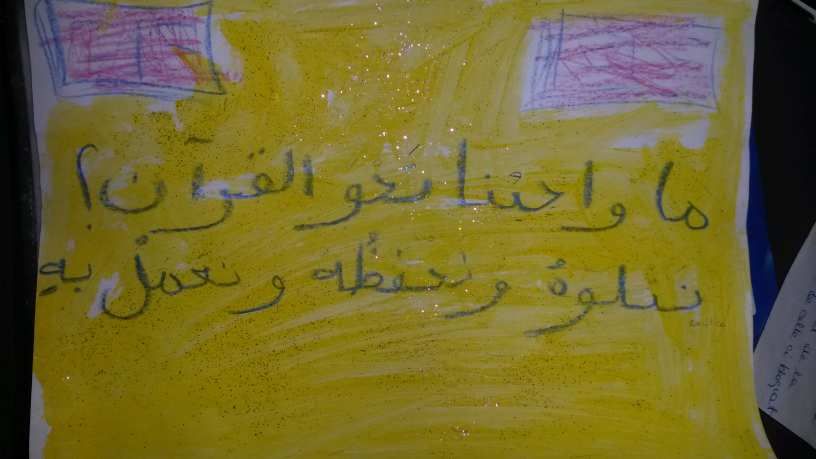 ما واجبنا نحو القرآن؟
نتلوهُ ونحفظُه ونعملْ بهِ